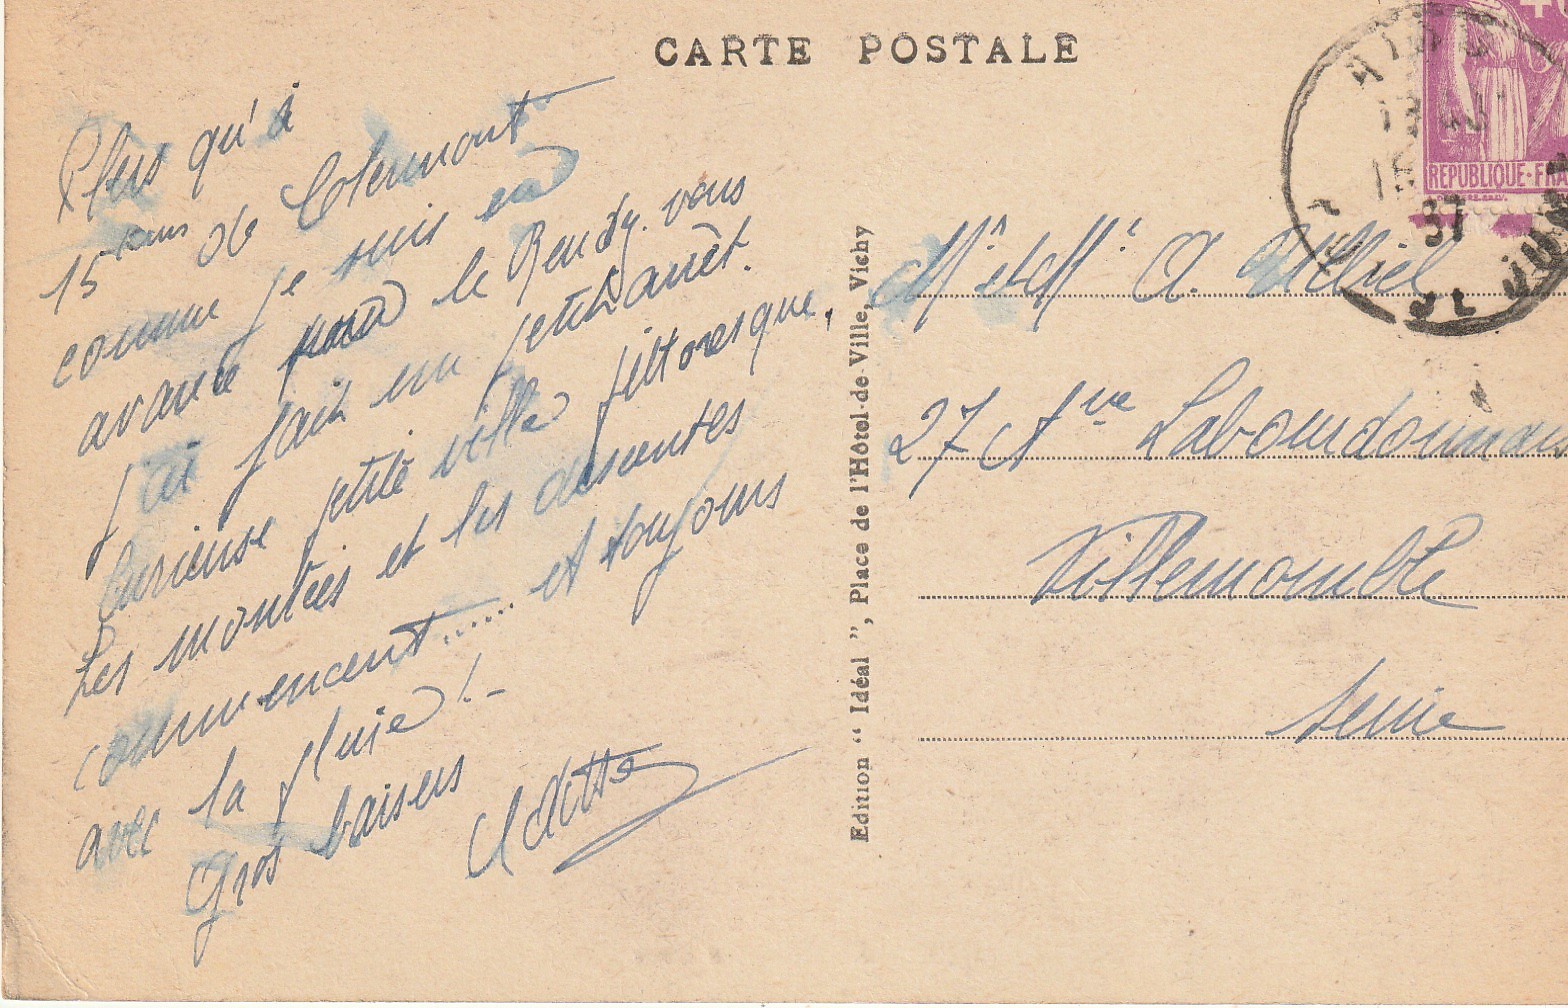 CARTE POSTALE
Plus qu'à
15 kms de Clermont
comme je suis en
avance pour le Rendg. vous
j'ai fait un petit arrêt.
Curieuse petite ville pittoresque,
Les montées et les descentes
commencent...... et toujours
avec la pluie !-
Gros baisers
Odette
Edition “ Idéal ”, Place de l'Hôtel-de-Ville, Vichy
REPUBLIQUE-FRA
37
Mr et Me A.
27 Ave Labourdonnais
Villemomble
Seine